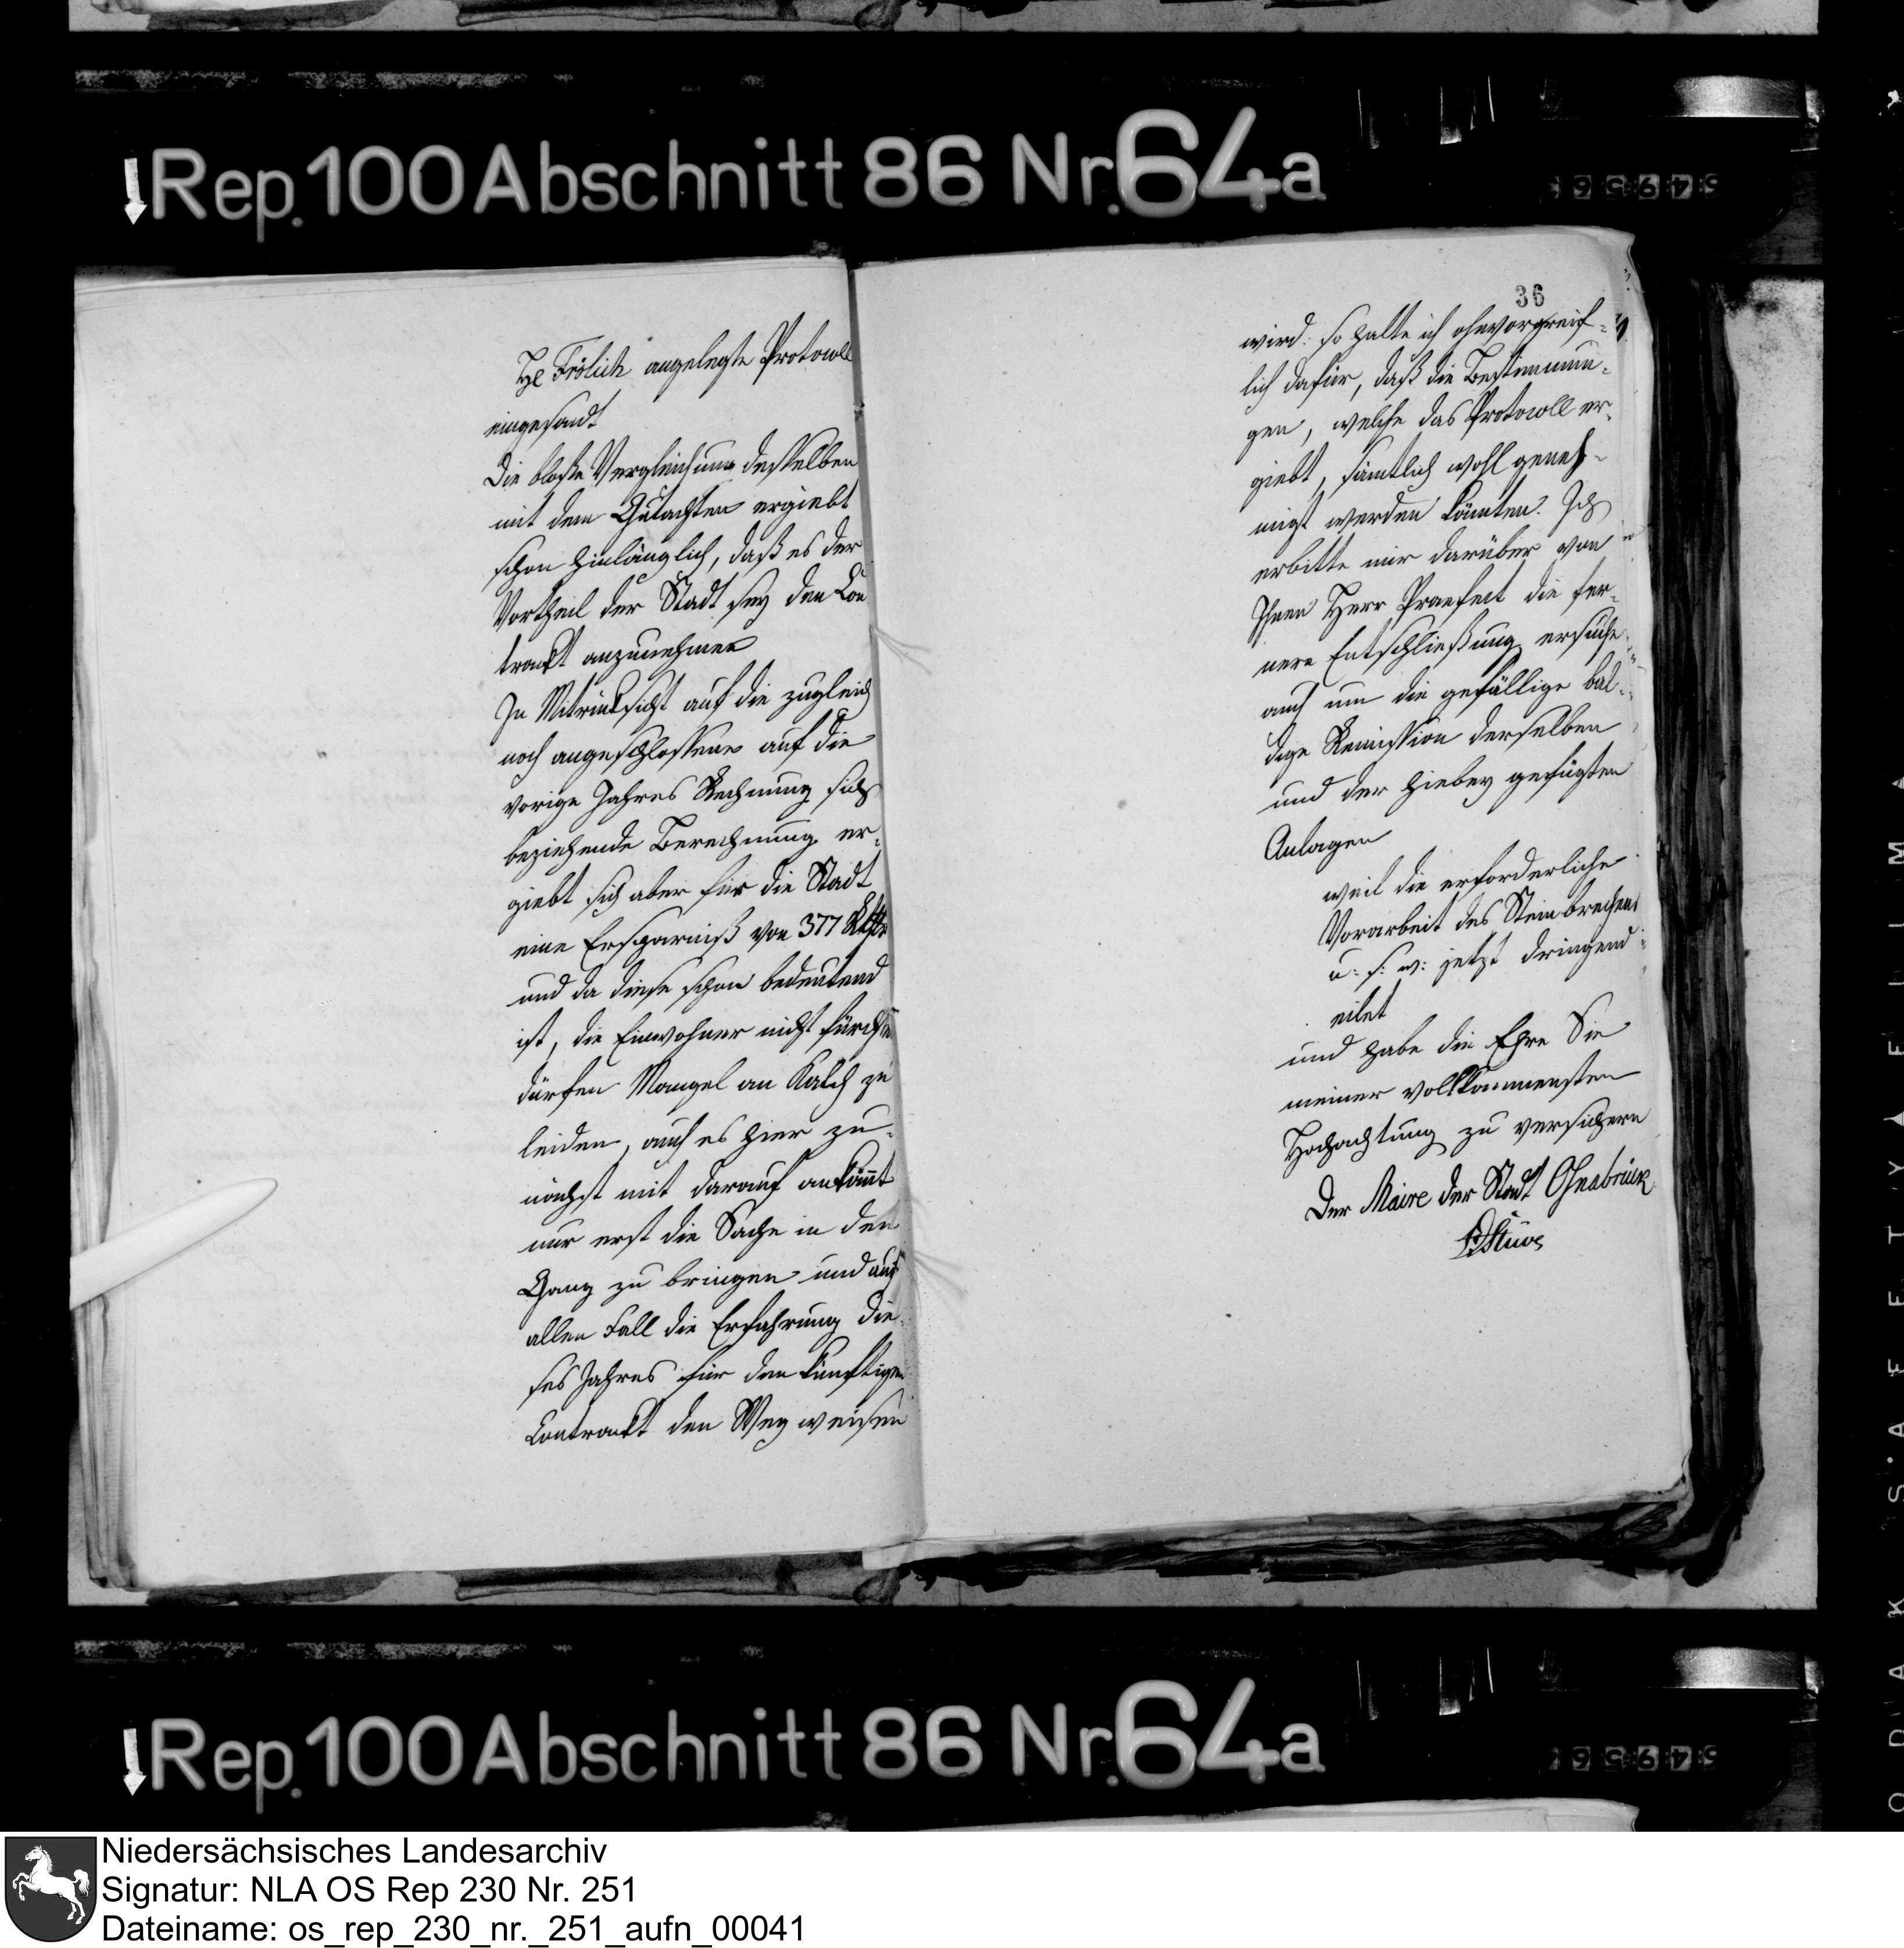 ↓Rep.100 Abschnitt 86 Nr.64a
He Frölich angelegte Protocoll
eingesandt
Die bloße Vergleichung desselben
mit dem Gutachten ergiebt
schon hinlänglich, daß es der
Vortheil der Stadt sey den Con
trackt anzunehmen
In Mitrücksicht auf die zugleich
noch angeschlossene auf die
vorige Jahres Rechnung sich
beziehende Berechnung er-
giebt sich aber für die Stadt
eine Ersparniß von 377 Rthlr
und da diese schon bedeutend
ist, die Einwohner nicht fürchten
dürfen Mangel an Kalch zu
leiden, auch es hier zu-
nächst mit darauf ankömt
nur erst die Sache in den
Gang zu bringen und auf
allen Fall die Erfahrung die-
ses Jahres für den künftigen
Contrackt den Weg weisen
36
wird: so halte ich ohnvorgreif-
lich dafür, daß die Bestimmun-
gen, welche das Protocoll er-
giebt, sämtlich wohl geneh-
migt werden könnten. Ich
erbitte mir darüber von
Ihnen Herr Praefect die fer-
nere Entschließung, ersuche
auch um die gefällige bal-
dige Remission derselben
und der hiebey gefügten
Anlagen
weil die erforderliche
Vorarbeit des Steinbrechens
u. s. w. jetzt dringend
eilet
und habe die Ehre Sie
meiner vollkommensten
Hochachtung zu versichern
Der Maire der Stadt Osnabrück
Stüve
↓Rep.100 Abschnitt 86 Nr.64a
Niedersächsisches Landesarchiv
Signatur: NLA OS Rep 230 Nr. 251
Dateiname: os_rep_230_nr._251_aufn_00041